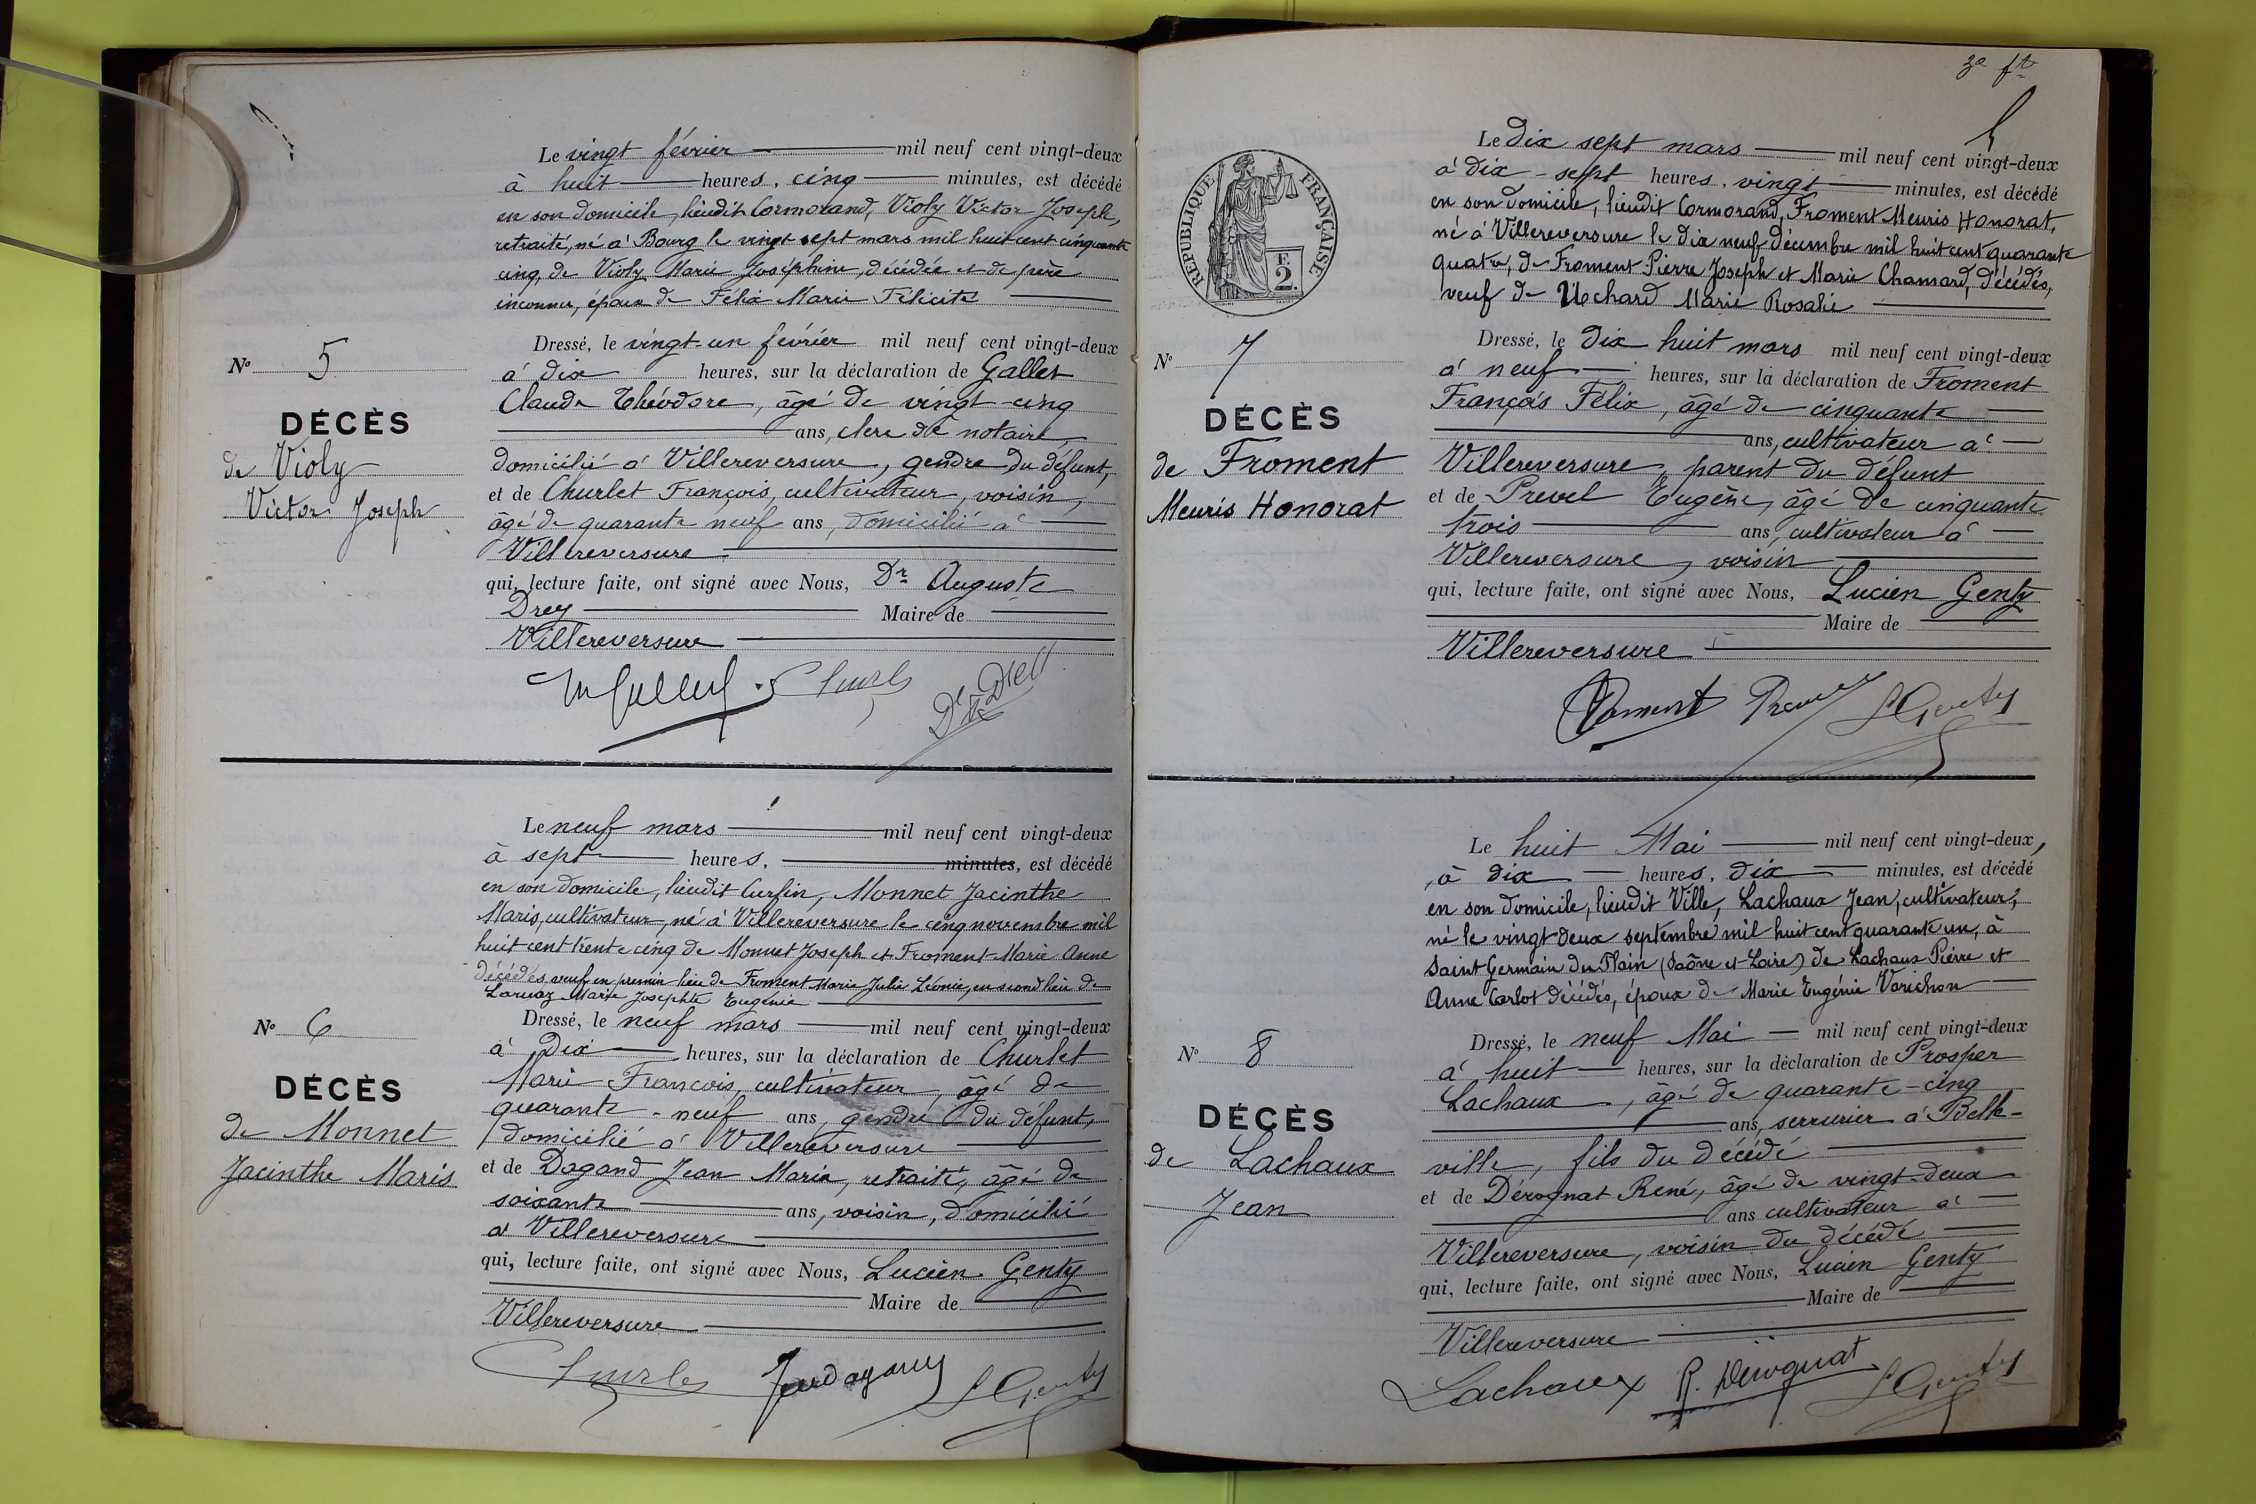 Le vingt février mil neuf cent vingt-deux
à huit heures, cinq minutes, est décédé
en son domicile, lieudit Cormorand, Violy Victor Joseph,
retraité, né à Bourg le vingt sept mars mil huit cent cinquante
cinq, de Violy Marie Joséphine, décédée et de père
inconnu, époux de Félix Marie Félicité
Dressé, le vingt-un février mil neuf cent vingt-deux
à dix heures, sur la déclaration de Gallet
Claude Théodore, âgé de vingt-cinq
ans, clerc de notaire,
domicilié à Villereversure, gendre du défunt,
et de Churlet François, cultivateur, voisin,
âgé de quarante neuf ans, domicilié à
Villereversure
qui, lecture faite, ont signé avec Nous, Dr Auguste
Drey Maire de
Villereversure
No 5
DÉCÈS
de Violy
Victor Joseph
Le neuf mars mil neuf cent vingt-deux
à sept heures, minutes, est décédé
en son domicile, lieudit Curfin, Monnet Jacinthe
Maris, cultivateur, né à Villereversure le cinq novembre mil
huit cent trente cinq de Monnet Joseph et Froment Marie Anne
décédés veuf en premier lieu de Froment Marie Julie Léonie, en second lieu de
Marie Josephte Eugénie
Dressé, le neuf mars mil neuf cent vingt-deux
à Dix heures, sur la déclaration de Churlet
Marie François, cultivateur, âgé de
quarante-neuf ans, gendre du défunt,
domicilié à Villereversure
et de Dagand Jean Marie, retraité, âgé de
soixante ans, voisin, domicilié
à Villereversure
qui, lecture faite, ont signé avec Nous, Lucien Genty
Maire de
Villereversure
No 6
DÉCÈS
de Monnet
Jacinthe Maris
L Genty
3e ft
RÉPUBLIQUE FRANÇAISE
F.
2.
Le Dix sept mars mil neuf cent vingt-deux
à dix-sept heures, vingt minutes, est décédé
en son domicile, lieudit Cormorand, Froment Meuris Honorat,
né à Villereversure le dix neuf décembre mil huit cent quarante
quatre, de Froment Pierre Joseph et Marie Chanard, décédés,
veuf de Uchard Marie Rosalie
Dressé, le Dix huit mars mil neuf cent vingt-deux
à neuf heures, sur la déclaration de Froment
François Félix, âgé de cinquante
ans, cultivateur à
Villereversure, parent du défunt
et de Prevel Eugène, âgé de cinquante
trois ans, cultivateur à
Villereversure, voisin
qui, lecture faite, ont signé avec Nous, Lucien Genty
Maire de
Villereversure
Froment L Genty
No 7
DÉCÈS
de Froment
Meuris Honorat
Le huit Mai mil neuf cent vingt-deux,
à dix heures, dix minutes, est décédé
en son domicile, lieudit Ville, Lachaux Jean, cultivateur,
né le vingt deux septembre mil huit cent quarante un, à
Saint Germain du Plain (Saône et Loire) de Lachaux Pierre et
Anne Carlot décédés, époux de Marie Eugénie Varichon
Dressé, le neuf Mai mil neuf cent vingt-deux
à huit heures, sur la déclaration de Prosper
Lachaux, âgé de quarante-cinq
ans, serrurier à Belle-
ville, fils du décédé
et de Dérognat René, âgé de vingt-deux
ans cultivateur à
Villereversure, voisin du décédé
qui, lecture faite, ont signé avec Nous, Lucien Genty
Maire de
Villereversure
Lachaux R. Dérognat L Genty
No 8
DÉCÈS
de Lachaux
Jean